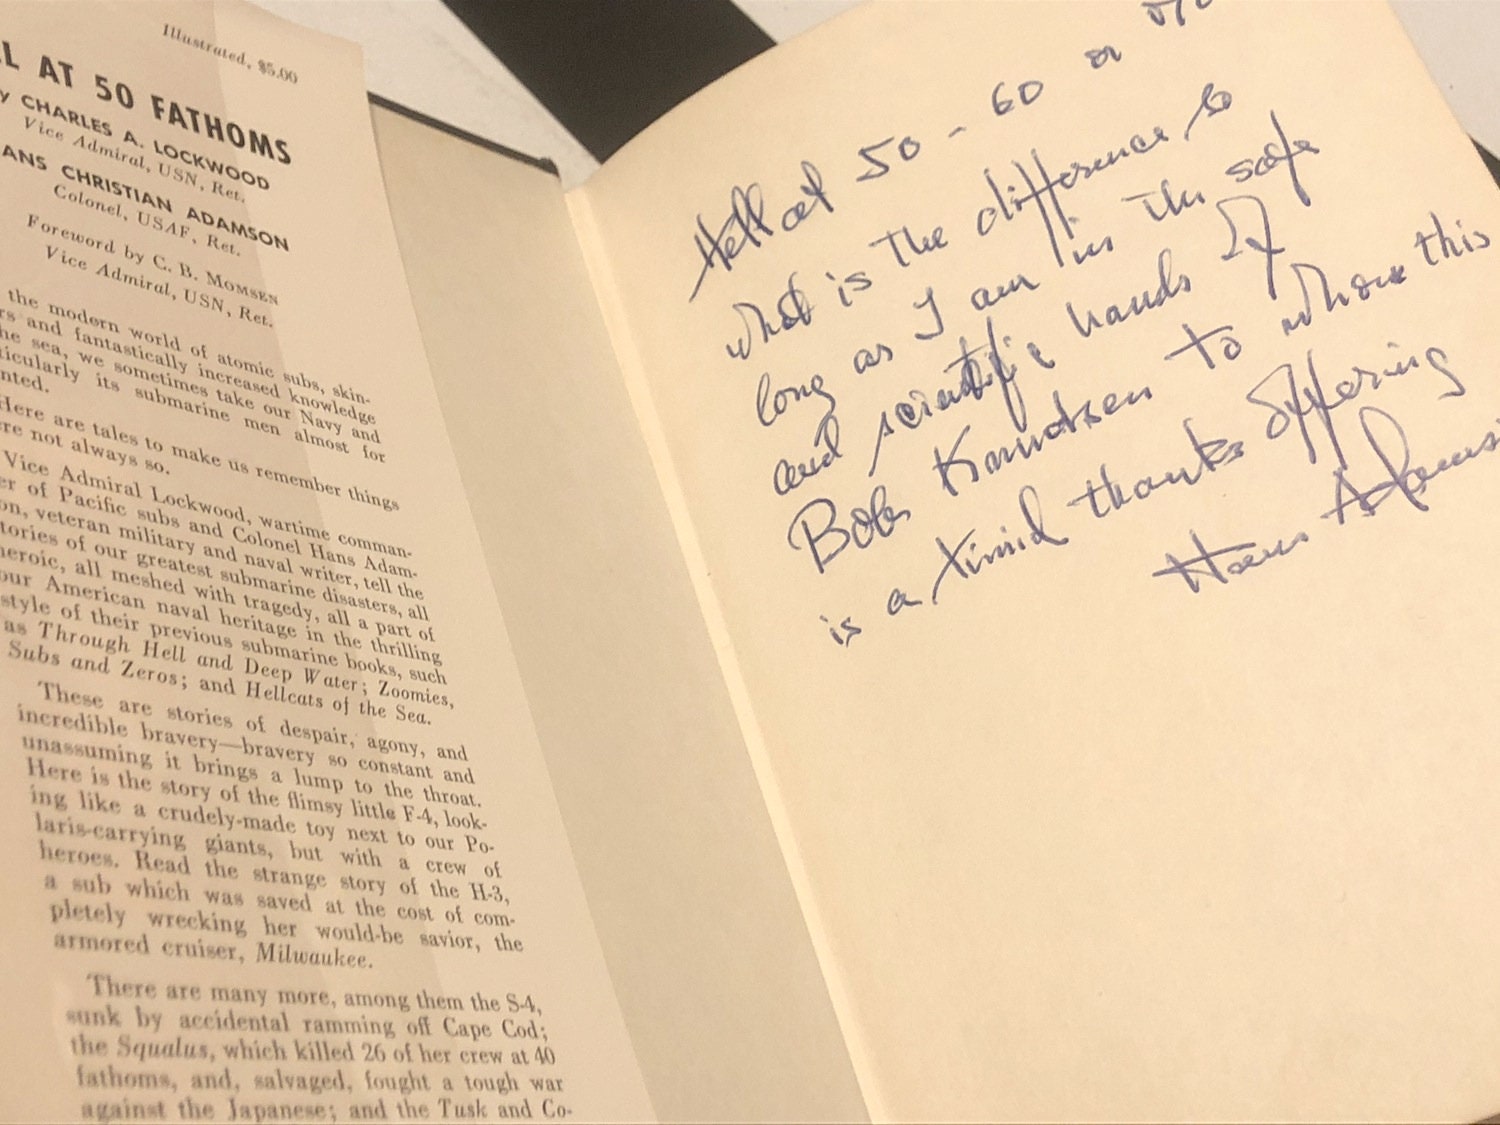 Illustrated, $5.00
L AT 50 FATHOMS
y CHARLES A. LOCKWOOD
Vice Admiral, USN, Ret.
ANS CHRISTIAN ADAMSON
Colonel, USAF, Ret.
Foreword by C. B. MOMSEN
Vice Admiral, USN, Ret.
the modern world of atomic subs, skin-
rs and fantastically increased knowledge
he sea, we sometimes take our Navy and
ticularly its submarine men almost for
nted.
Here are tales to make us remember things
re not always so.
Vice Admiral Lockwood, wartime comman-
er of Pacific subs and Colonel Hans Adam-
on, veteran military and naval writer, tell the
tories of our greatest submarine disasters, all
heroic, all meshed with tragedy, all a part of
our American naval heritage in the thrilling
style of their previous submarine books, such
as Through Hell and Deep Water; Zoomies,
Subs and Zeros; and Hellcats of the Sea.
These are stories of despair, agony, and
incredible bravery—bravery so constant and
unassuming it brings a lump to the throat.
Here is the story of the flimsy little F-4, look-
ing like a crudely-made toy next to our Po-
laris-carrying giants, but with a crew of
heroes. Read the strange story of the H-3,
a sub which was saved at the cost of com-
pletely wrecking her would-be savior, the
armored cruiser, Milwaukee.
There are many more, among them the S-4,
sunk by accidental ramming off Cape Cod;
the Squalus, which killed 26 of her crew at 40
fathoms, and, salvaged, fought a tough war
against the Japanese; and the Tusk and Co-
Hell at 50 - 60 or
what is the difference so
long as I am in the safe
and scientific hands of
Bob Knudsen to whom this
is a timid thanks offering
Hans Adamson